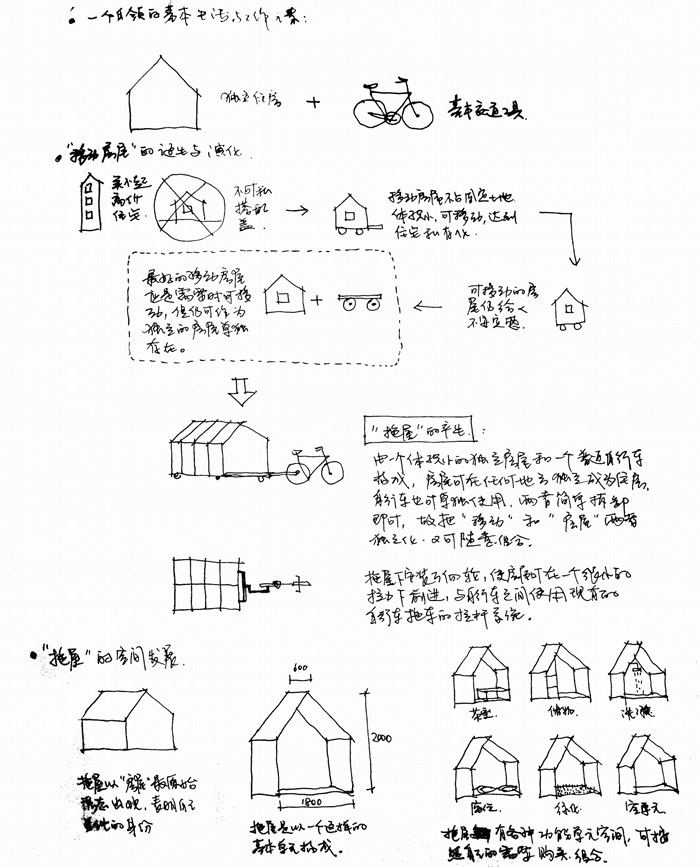 一个白领的基本生活与工作元素：
独立住房
+
基本交通工具
"移动房屋"的诞生与演化
买不起
高价
住宅
不可私
搭乱
盖
移动房屋不占固定土地
体较小，可移动，达到
住宅私有化.
可移动的房
屋仍给人
不安定感
最好的移动房屋
也是需要时可移
动，但仍可作为
独立的房屋单独
存在。
+
"拖屋"的产生：
由一个体较小的独立房屋和一个普通自行车
构成，房屋可在任何地方独立成为住屋，
自行车也可单独使用，两者简单拆卸
即可，故把"移动"和"房屋"两者
独立化.又可随意组合.
拖屋下安装万向轮，使房屋可在一个很小的
拉力下前进，与自行车之间使用现有的
自行车拖车的拉杆系统.
"拖屋"的空间发展.
拖屋以"房屋"最原始
形态出现，表明自己
的身份
600
2000
1800
拖屋是以一个这样的
基本单元构成.
茶室.
储物.
洗澡
床位.
绿化.
空单元.
拖屋有各种功能单元空间，可按
照自己的需要购买、组合.